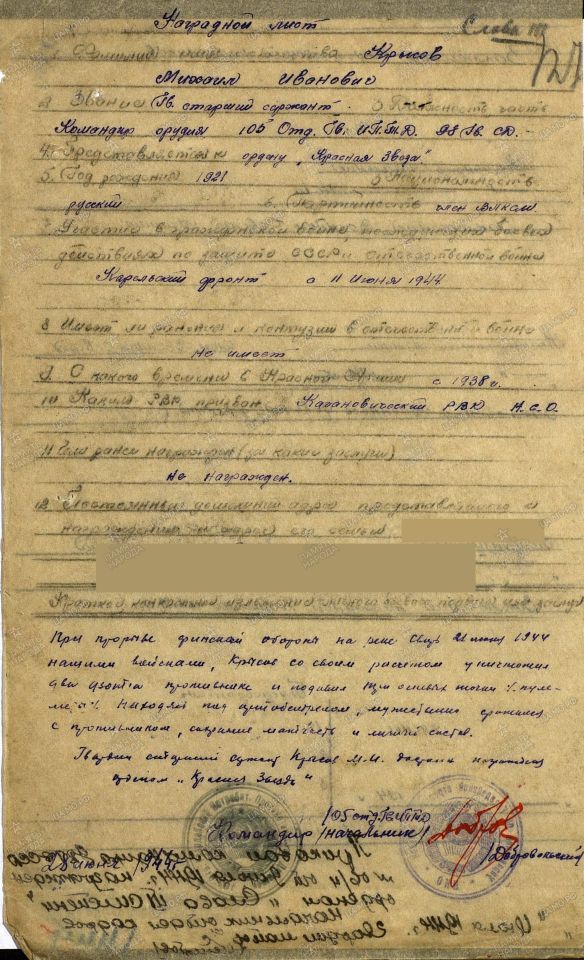 Наградной лист
Слава III
1. Фамилия имя отчество Крысов
Михаил Иванович
2. Звание Гв. старший сержант. 3. Должность часть
Командир орудия 105 Отд. Гв. И.П.Т.Д. 98 Гв. СД. -
4. Представляется к ордену "Красная Звезда"
5. Год рождения 1921 5 Национальность
русский 6. Партийность член ВЛКСМ
7. Участие в гражданской войне, последующих боевых
действиях по защите СССР и отечественной войне
Карельский фронт с 11 июня 1944
8. Имеет ли ранения и контузии в отечественной войне
Не имеет
9. С какого времени в Красной Армии с 1938 г.
10. Каким РВК призван Кагановический РВК Н.С.О.
11. Чем ранее награжден (за какие заслуги)
Не награжден.
12. Постоянный домашний адрес представляемого к
награждению и адрес его семьи
Краткое, конкретное изложение личного боевого подвига или заслуг
При прорыве финской обороны на реке Свирь 21 июня 1944
нашими войсками, Крысов со своим расчетом уничтожил
два дзота противника и подавил три огневых точки
Находясь под артобстрелом, мужественно сражался
с противником, сохранив матчасть и личный состав.
Гвардии старший сержант Крысов М.И. достоин награждения
орденом "Красная Звезда"
105 отд Гв ИПТД
Командир (начальник) Добров
/Добровольский/
28 июня 1944 г.
Приказом
награжден
орденом "Слава III степени"
Начальник
Гвардии майор